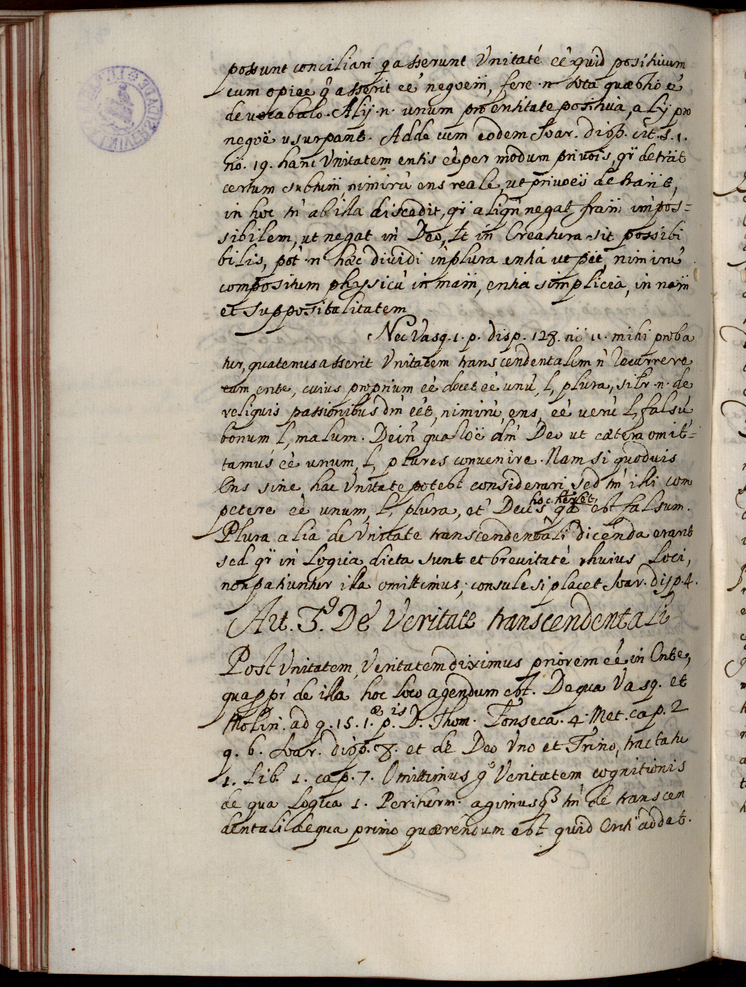 possunt conciliari q̃ asserunt Unitatẽ eẽ quid positivum
cum opĩee q̃ asserit eẽ negoẽm, fere .n. tota quæstio ẽ
de vocabulo. Alij .n. unum pro entitate positiva, alij pro
negoẽ usurpant. Adde cum eodem Soar. disp. cit. s. 1.
nõ. 19. hanc Unitatem entis eẽ per modum privõis, qĩ detrãt
certum subtum nimirũ ens reale, ut privoẽs detrãnt,
in hoc tñ ab illa discedit, qĩ aliqñ negat fram impos-
sibilem, ut negat in Deo, lt in Creatura sit possibi
bilis, pot .n. hæc dividi in plura entia ut pẽt, nimirũ
compositum physicũ in mam, entia simplicia, in nam
et suppositalitatem
Nec Vasq. 1. p. disp. 128. nõ 11. mihi proba
tur, quatenus asserit Unitatem transcendentalem ñ
cum ente, cuius proprium eẽ docet eẽ unũ, l, plura, silr .n. de
reliquis passionibus dm̃ eẽt, nimirũ, ens, eẽ verũ l, falsũ
bonum l, malum. Dein qua lõẽ dm̃ Deo ut cætera omit-
tamus eẽ unum, l, plures convenire. Nam si quodvis
Ens sine hac Unitate potest considerari, sed tñ illi com
petere eẽ unum, l, plura, et Deus hoc habet, q̃ est falsum.
Plura alia de Unitate transcendentali dicenda erant
sed qĩ in Logica dicta sunt et brevitatẽ huius Loci,
non patiuntur illa omittimus; consule si placet Soar. disp. 4.
Art. 3.º De Veritate transcendentali
Post Unitatem, Veritatem diximus priorem eẽ in Ente,
quappr̃ de illa hoc loco agendum est. De qua Vasq. et
Molin. ad q. 15. 1.æ p.is D. Thom. Fonseca. 4. Met. cap. 2
q. 6. Soar. disp. 8. et de Deo Uno et Trino, tractatu
1. Lib. 1. cap. 7. Omittimus gº Veritatem cognitionis
de qua Logica 1. Periherm. agimus tñ de transcen
dentali de qua primo quærendum est quid Enti addat.